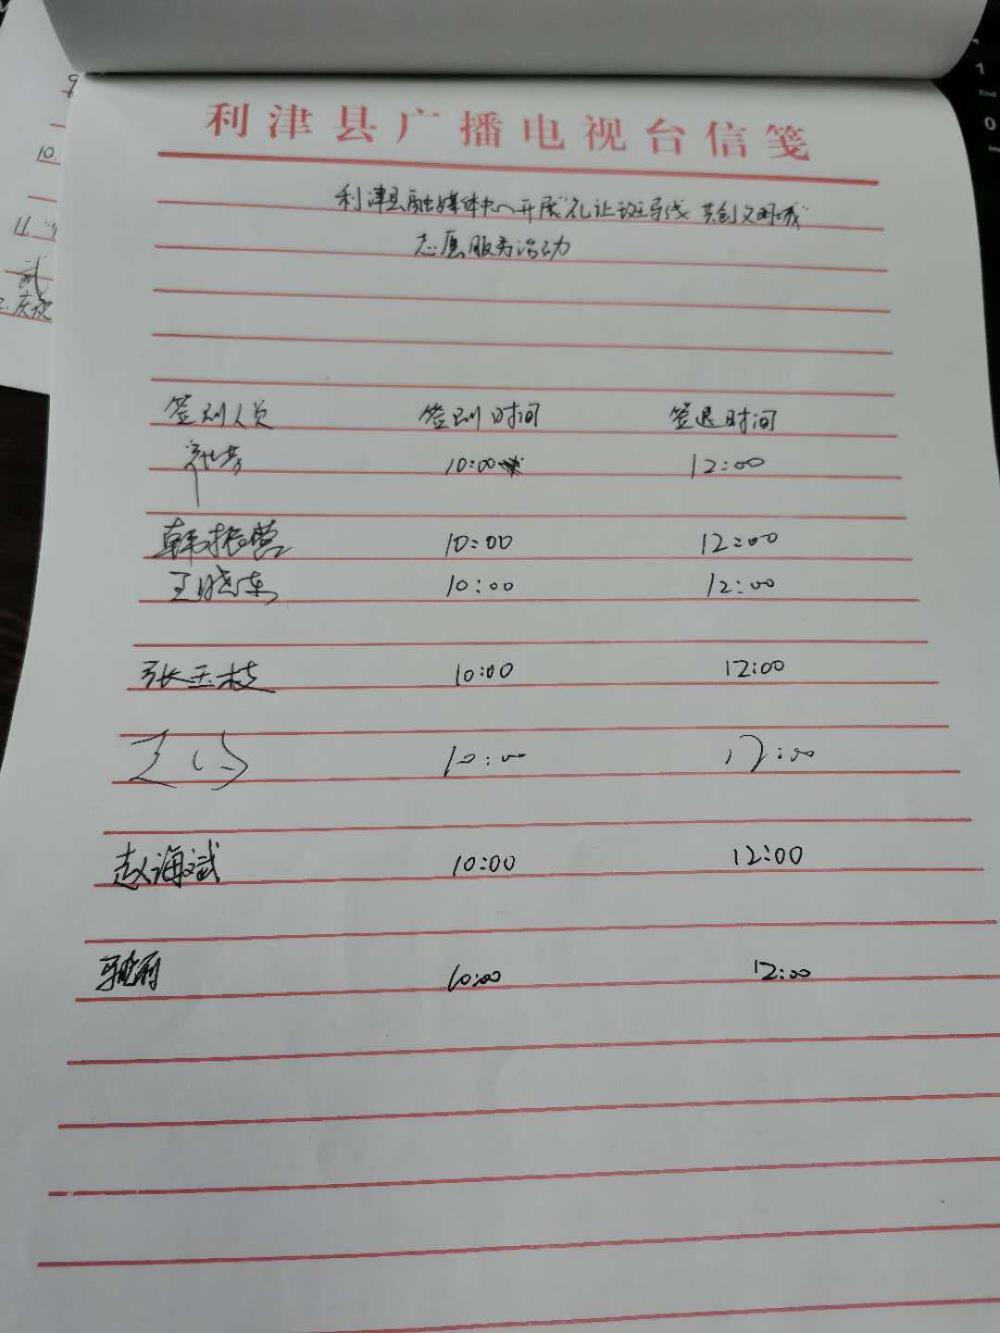 利津县广播电视台信笺
利津县融媒体中心开展"礼让斑马线 共创文明城"
志愿服务活动
签到人员 签到时间 签退时间
10:00 12:00
韩振营 10:00 12:00
王晓东 10:00 12:00
张玉枝 10:00 12:00
10:00 12:00
赵海斌 10:00 12:00
10:00 12:00
10.
11.